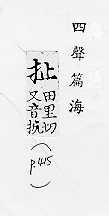 四聲篇海
扯田里切
又音抗
(p.415)